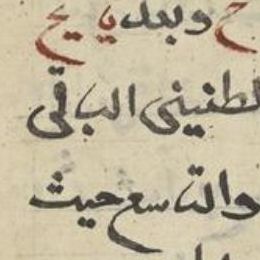 ح وبعد يا يح
لطنيني الباقي
والتاسع حيث